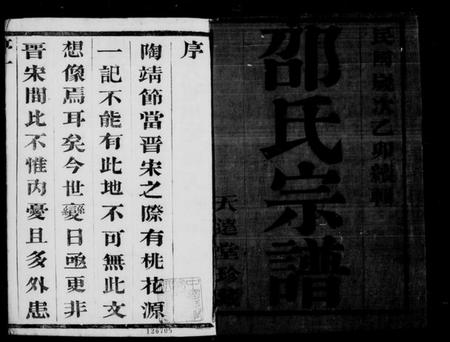 民國歲次乙卯續輯
邵氏宗譜
天遠堂珍藏
序
陶靖節當晉宋之際有桃花源
一記不能有此地不可無此文
想像焉耳矣今世變日亟更非
晉宋間比不惟內憂且多外患
序一
126705